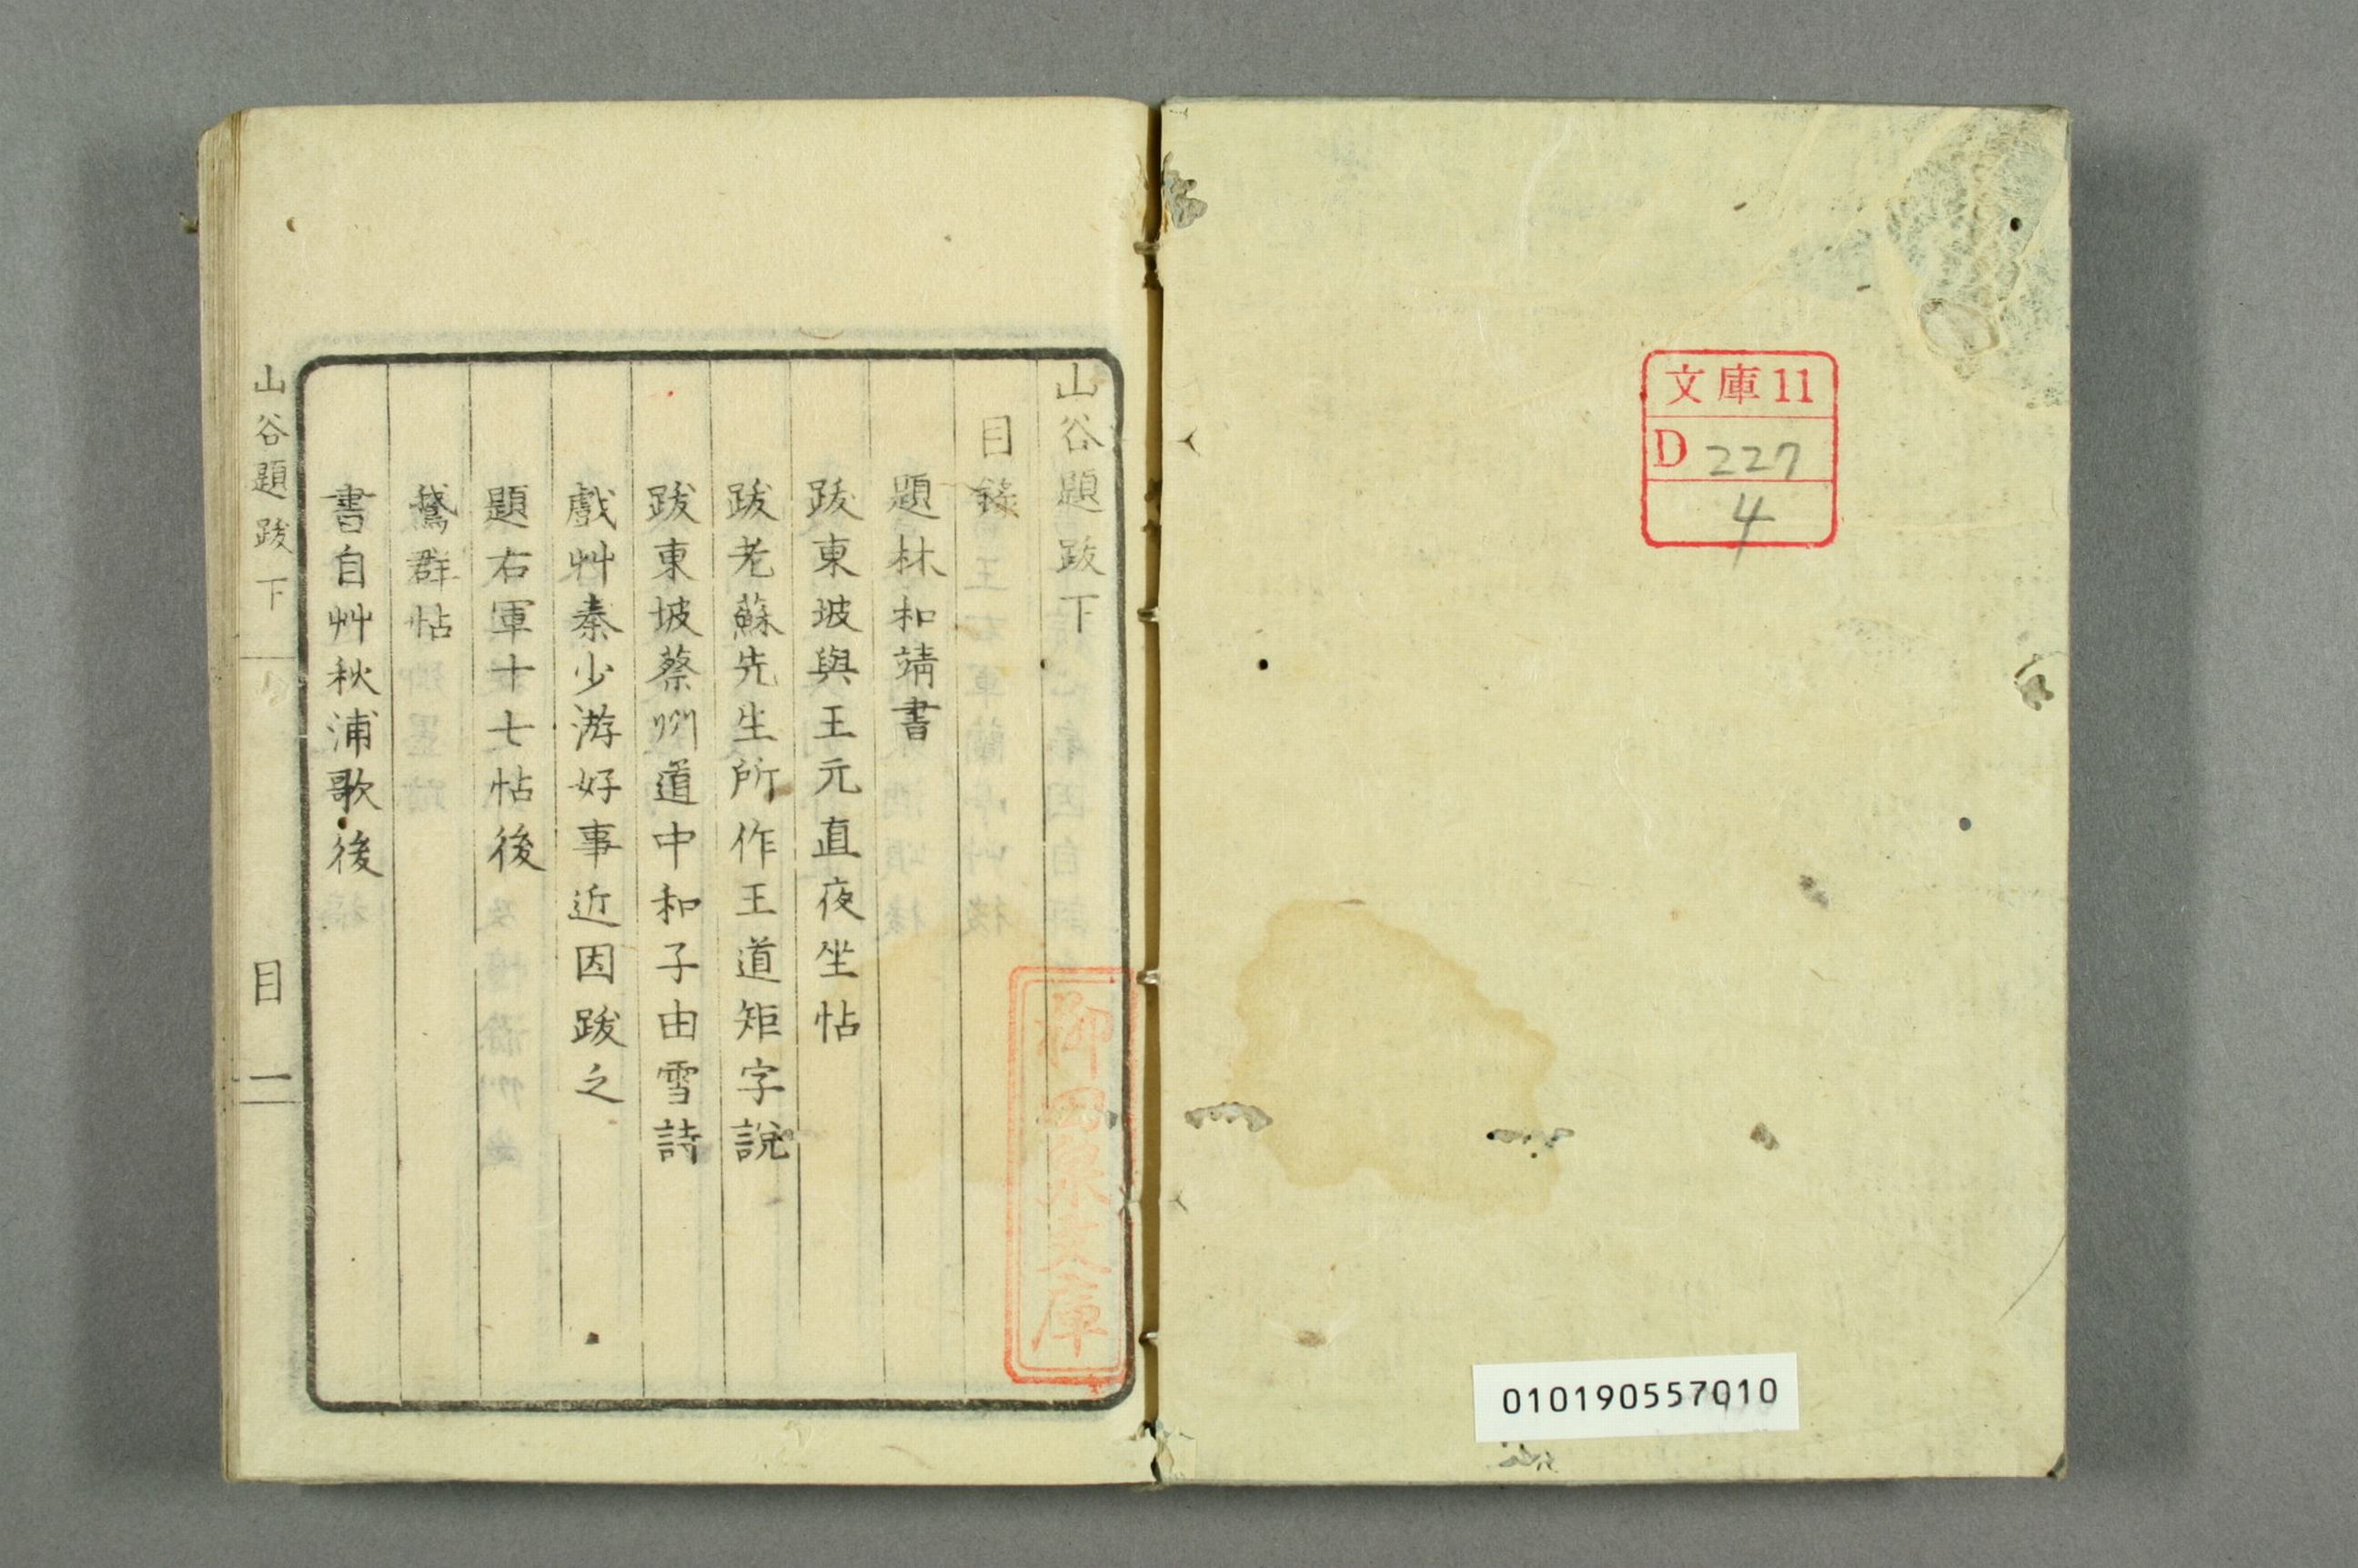 文庫11
D 227
4
010190557010
山谷題跋下
目錄
題林和靖書
跋東坡與王元直夜坐帖
跋老蘇先生所作王道矩字說
跋東坡蔡州道中和子由雪詩
戲艸秦少游好事近因跋之
題右軍十七帖後
鵞群帖
書自艸秋浦歌後
山谷題跋下
目
一
柳田泉文庫